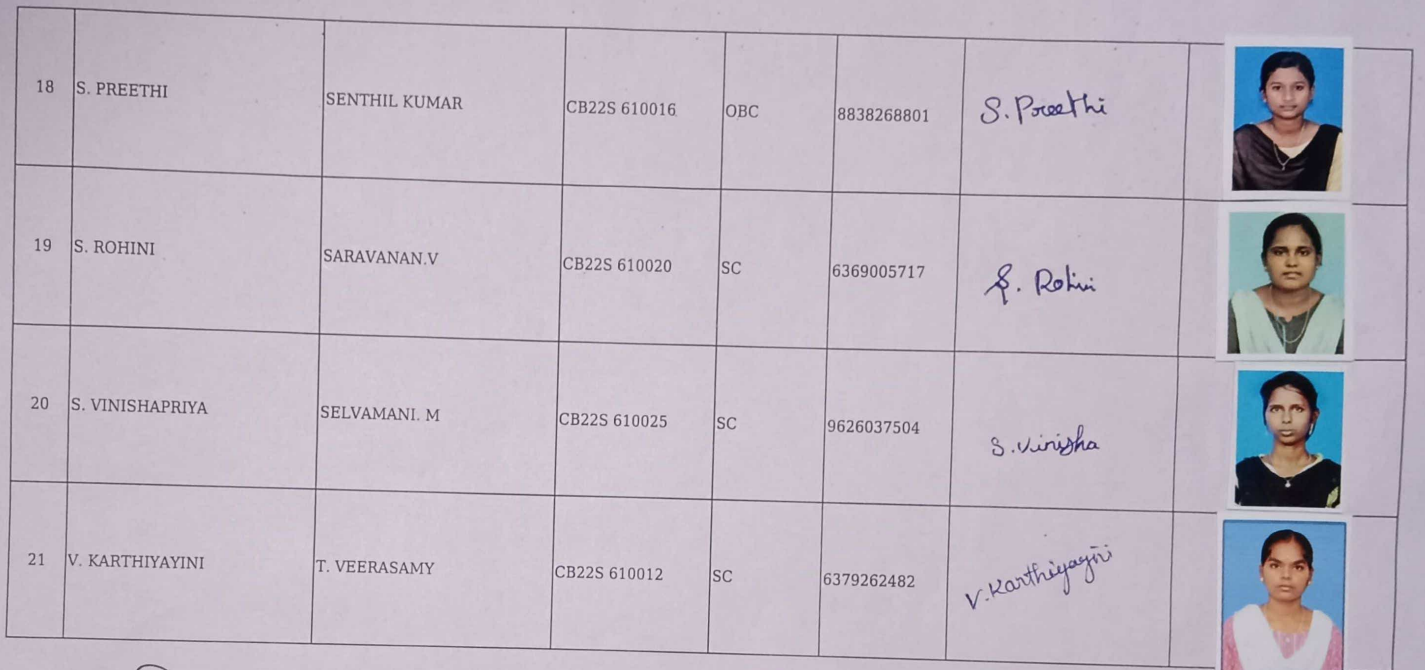 18 S. PREETHI SENTHIL KUMAR CB22S 610016 OBC 8838268801 S. Preethi
19 S. ROHINI SARAVANAN.V CB22S 610020 SC 6369005717 S. Rohini
20 S. VINISHAPRIYA SELVAMANI. M CB22S 610025 SC 9626037504 S. Vinisha
21 V. KARTHIYAYINI T. VEERASAMY CB22S 610012 SC 6379262482 V. Karthiyayini